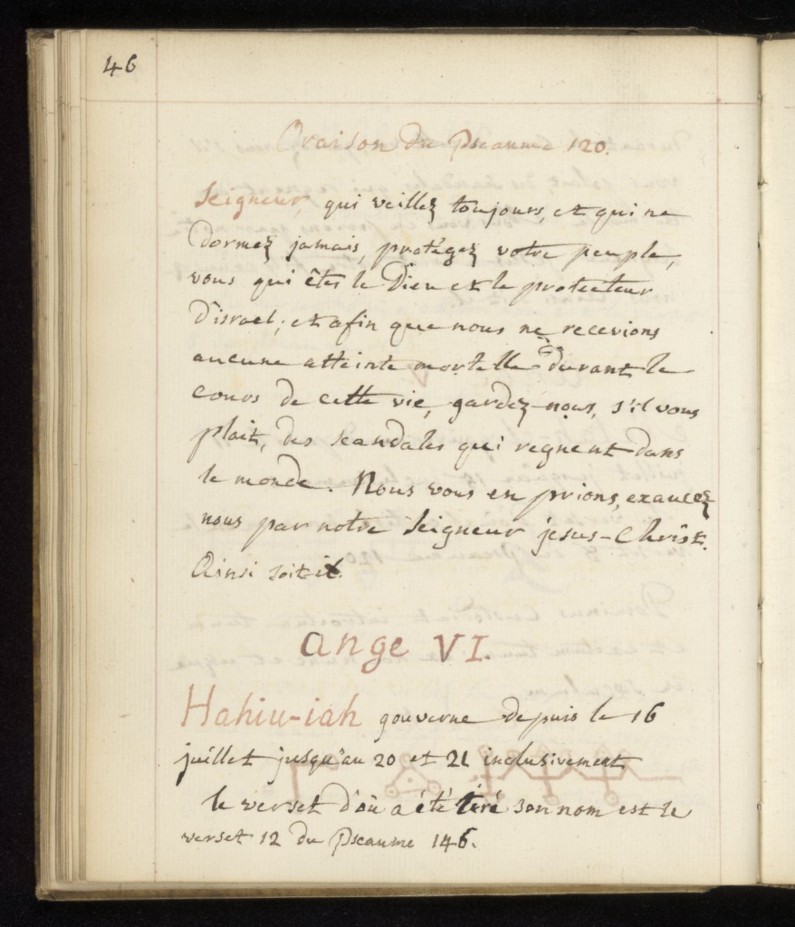 46
Oraison du Pseaume 120.
Seigneur, qui veillez toujours, et qui ne
dormez jamais, protégez votre peuple,
vous qui êtes le Dieu et le protecteur
d'israel; et afin que nous ne recevions
aucune atteinte mortelle durant le
cours de cette vie, gardez-nous, s'il vous
plait, des scandales qui regnent dans
le monde. Nous vous en prions, exaucez
nous par notre Seigneur jesus-Christ.
Ainsi soit il.
ange VI.
Hahiu-iah gouverne depuis le 16
juillet jusqu'au 20 et 21 inclusivement
le verset d'où a été tiré son nom est le
verset 12 du Pseaume 146.